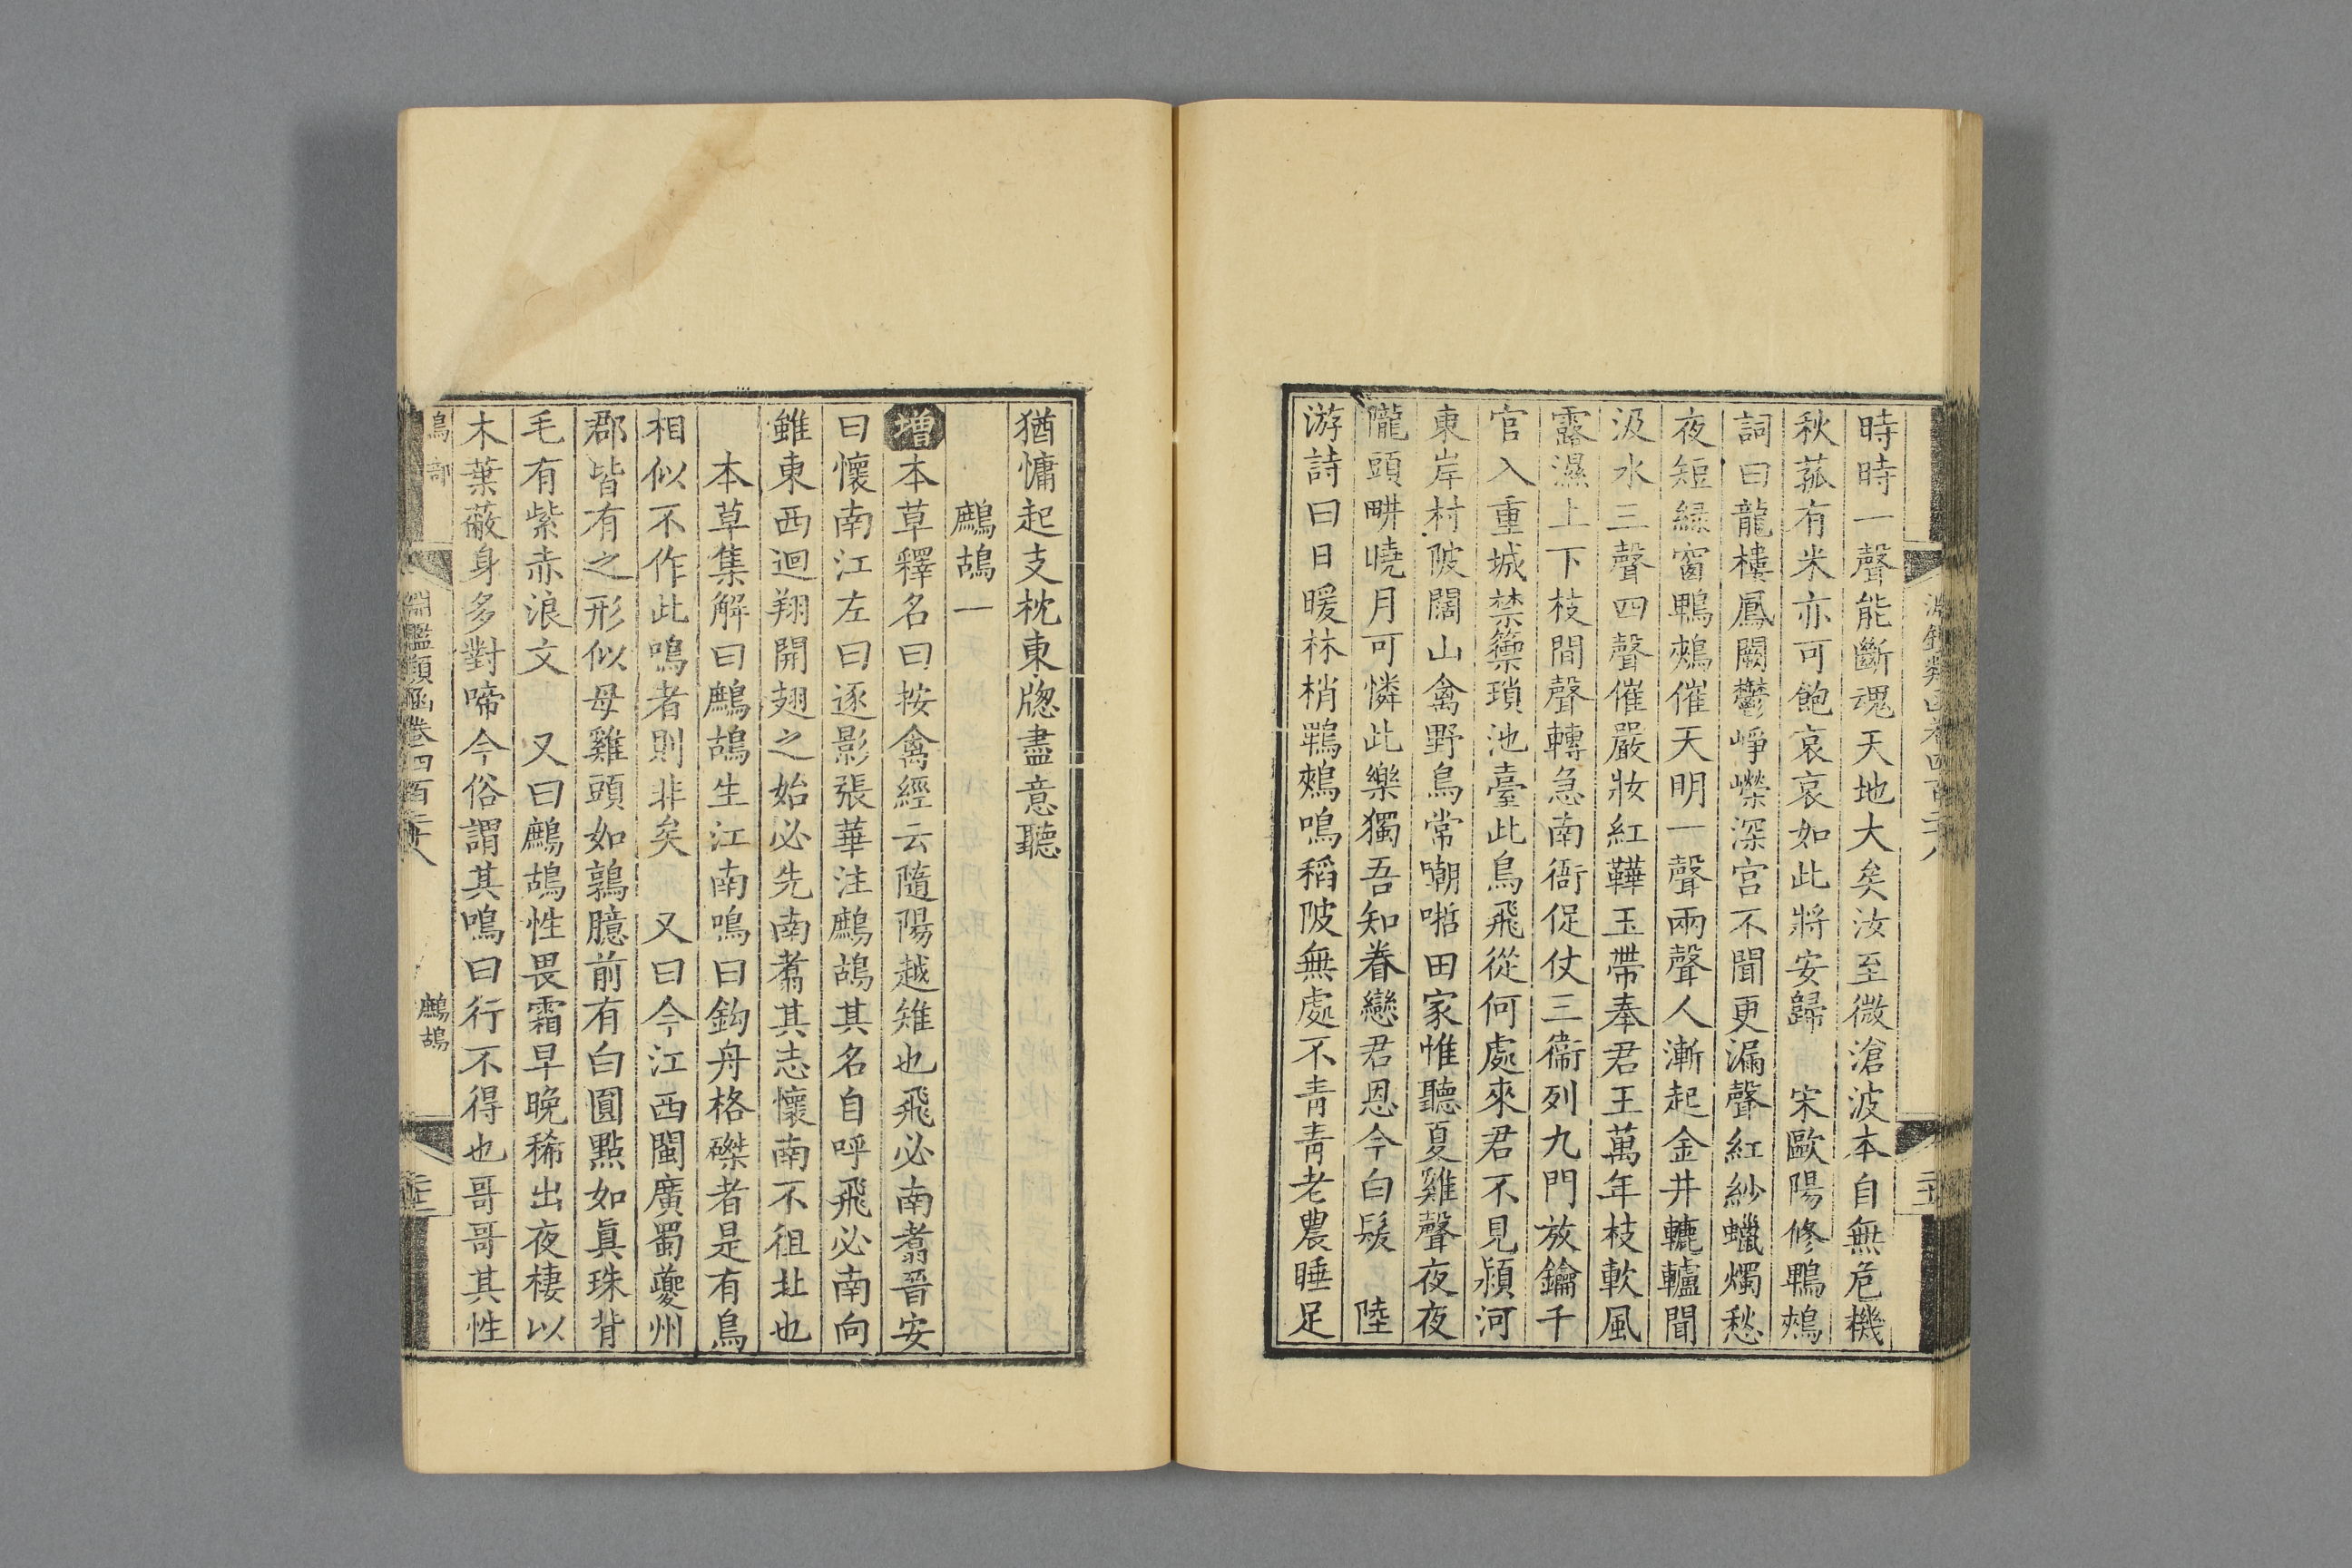 時時一聲能斷魂天地大矣汝至微滄波本自無危機
秋菰有米亦可飽哀哀如此將安歸　宋歐陽修鵯鵊
詞曰龍樓鳳闕鬱崢嶸深宮不聞更漏聲紅紗蠟燭愁
夜短緑窗鵯鵊催天明一聲兩聲人漸起金井轆轤聞
汲水三聲四聲催嚴妝紅鞾玉帶奉君王萬年枝軟風
露濕上下枝間聲轉急南衙促仗三衞列九門放鑰千
官入重城禁籞瑣池臺此鳥飛從何處來君不見潁河
東岸村陂闊山禽野鳥常嘲哳田家惟聽夏雞聲夜夜
隴頭畊曉月可憐此樂獨吾知眷戀君恩今白髮　陸
游詩曰日暖林梢鵯鵊鳴稻陂無處不青青老農睡足
猶慵起支枕東牕盡意聽
鷓鴣一
增本草釋名曰按禽經云隨陽越雉也飛必南翥晉安
曰懷南江左曰逐影張華注鷓鴣其名自呼飛必南向
雖東西迴翔開翅之始必先南翥其志懷南不徂北也
本草集解曰鷓鴣生江南鳴曰鈎舟格磔者是有鳥
相似不作此鳴者則非矣　又曰今江西閩廣蜀夔州
郡皆有之形似母雞頭如鶉臆前有白圓點如真珠背
毛有紫赤浪文　又曰鷓鴣性畏霜早晚稀出夜棲以
木葉蔽身多對啼今俗謂其鳴曰行不得也哥哥其性
鳥部
淵鑑類函卷四百二十八
鷓鴣